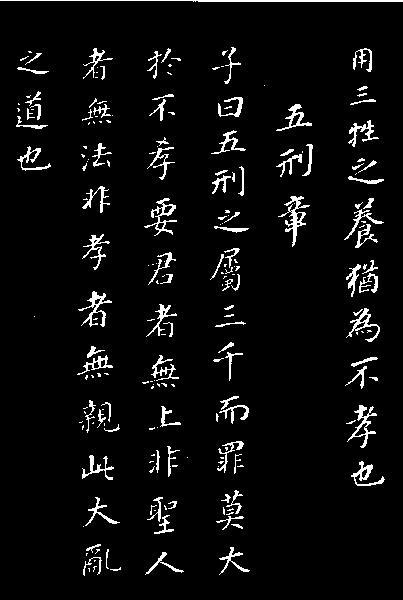 用三牲之養猶為不孝也
五刑章
子曰五刑之屬三千而罪莫大
於不孝要君者無上非聖人
者無法非孝者無親此大亂
之道也